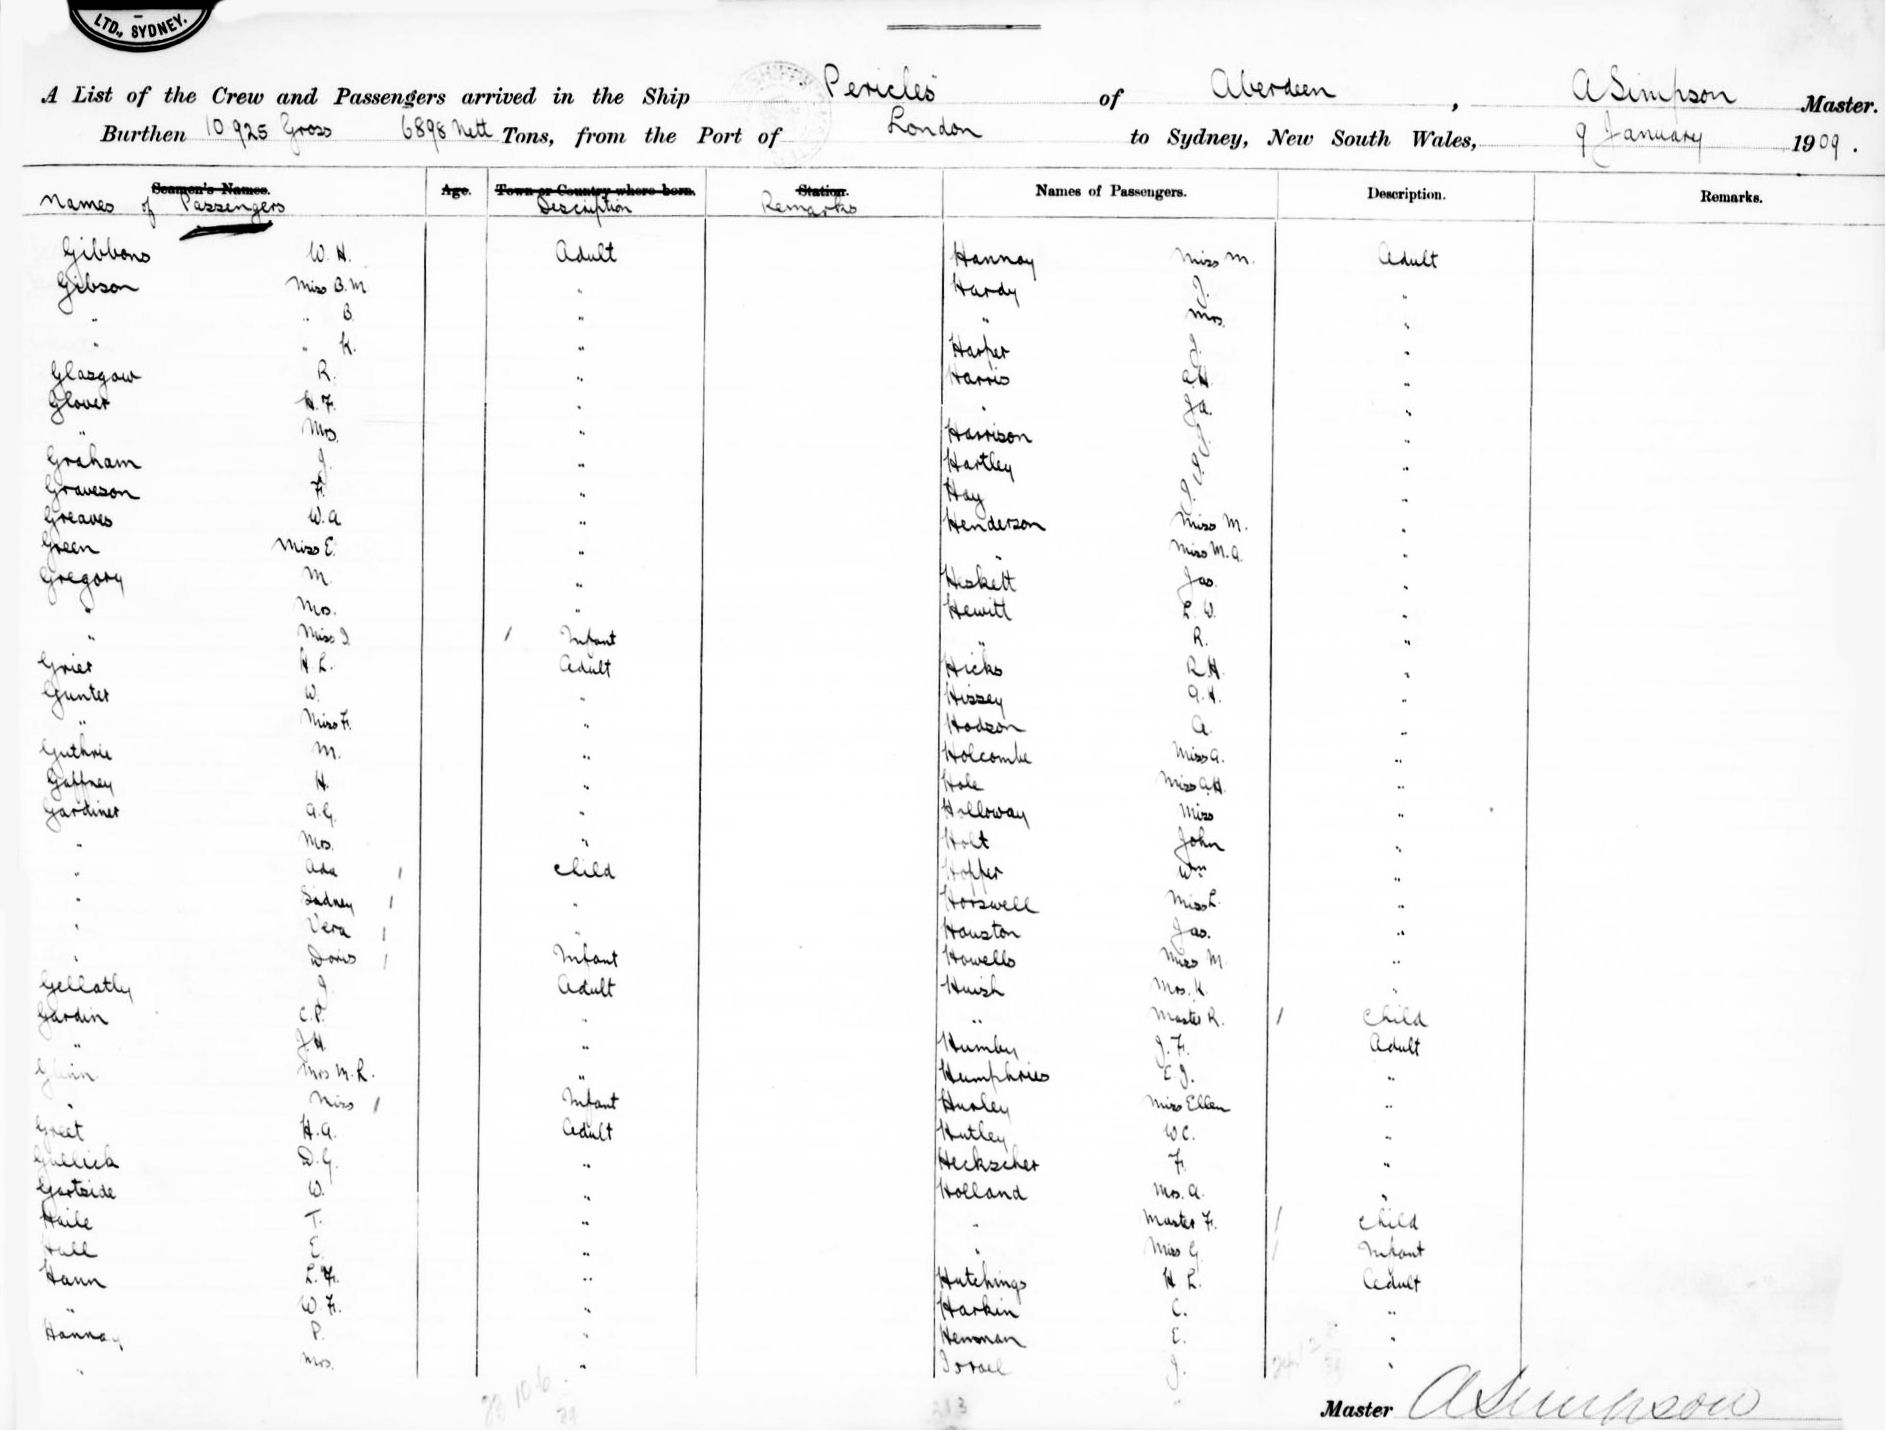 LTD., SYDNEY.
A List of the Crew and Passengers arrived in the Ship "Pericles" of Aberdeen, A Simpson Master.
Burthen 10925 Gross 6898 Nett Tons, from the Port of London to Sydney, New South Wales, 9 January 1909.
Seamen's Names. Age. Town or Country where born. Station. Names of Passengers. Description. Remarks.
Names of Passengers Description Remarks
Gibbons W. H. Adult
Gibson Miss B. M "
" " B. "
" " K. "
Glasgow R. "
Glover H. F. "
" Mrs. "
Graham J. "
Graveson F. "
Greaves W. A "
Green Miss E. "
Gregory M. "
" Mrs. "
" Miss I / Infant
Grier H L. Adult
Gunter W. "
" Miss F. "
Guthrie M. "
Gaffney H. "
Gardiner A. G. "
" Mrs. "
" Ada / Child
" Sidney / "
" Vera / "
" Doris / Infant
Gellatly J. Adult
Gardin C. P. "
" J. H "
Glinn Mrs M. R. "
" Miss / Infant
Greet H. A. Adult
Gullick D. G. "
Gartside W. "
Haile T. "
Hall E. "
Hann L. F. "
" W. F. "
Hannay P. "
" Mrs. "
Hannay Miss M. Adult
Hardy J. "
" Mrs. "
Harper J. "
Harris A. H "
" J A. "
Harrison J. "
Hartley J. "
Hay J. "
Henderson Miss M. "
" Miss M. A. "
Heskett Jas. "
Hewitt L. W. "
" R. "
Hicks R. H. "
Hissey A. H. "
Hodson A. "
Holcombe Miss A. "
Hole Miss A. H. "
Holloway Miss "
Holt John "
Hopper Wm "
Horswell Miss L. "
Houston Jas. "
Howells Miss M. "
Huish Mrs. K. "
" Master R. / Child
Humby J. F. Adult
Humphries E J. "
Hurley Miss Ellen "
Hutley W C. "
Heckscher F. "
Holland Mrs. A. "
" Master F. / Child
" Miss G. / Infant
Hutchings H L. Adult
Harkin C. "
Henman E. "
Israel J. "
Master A Simpson